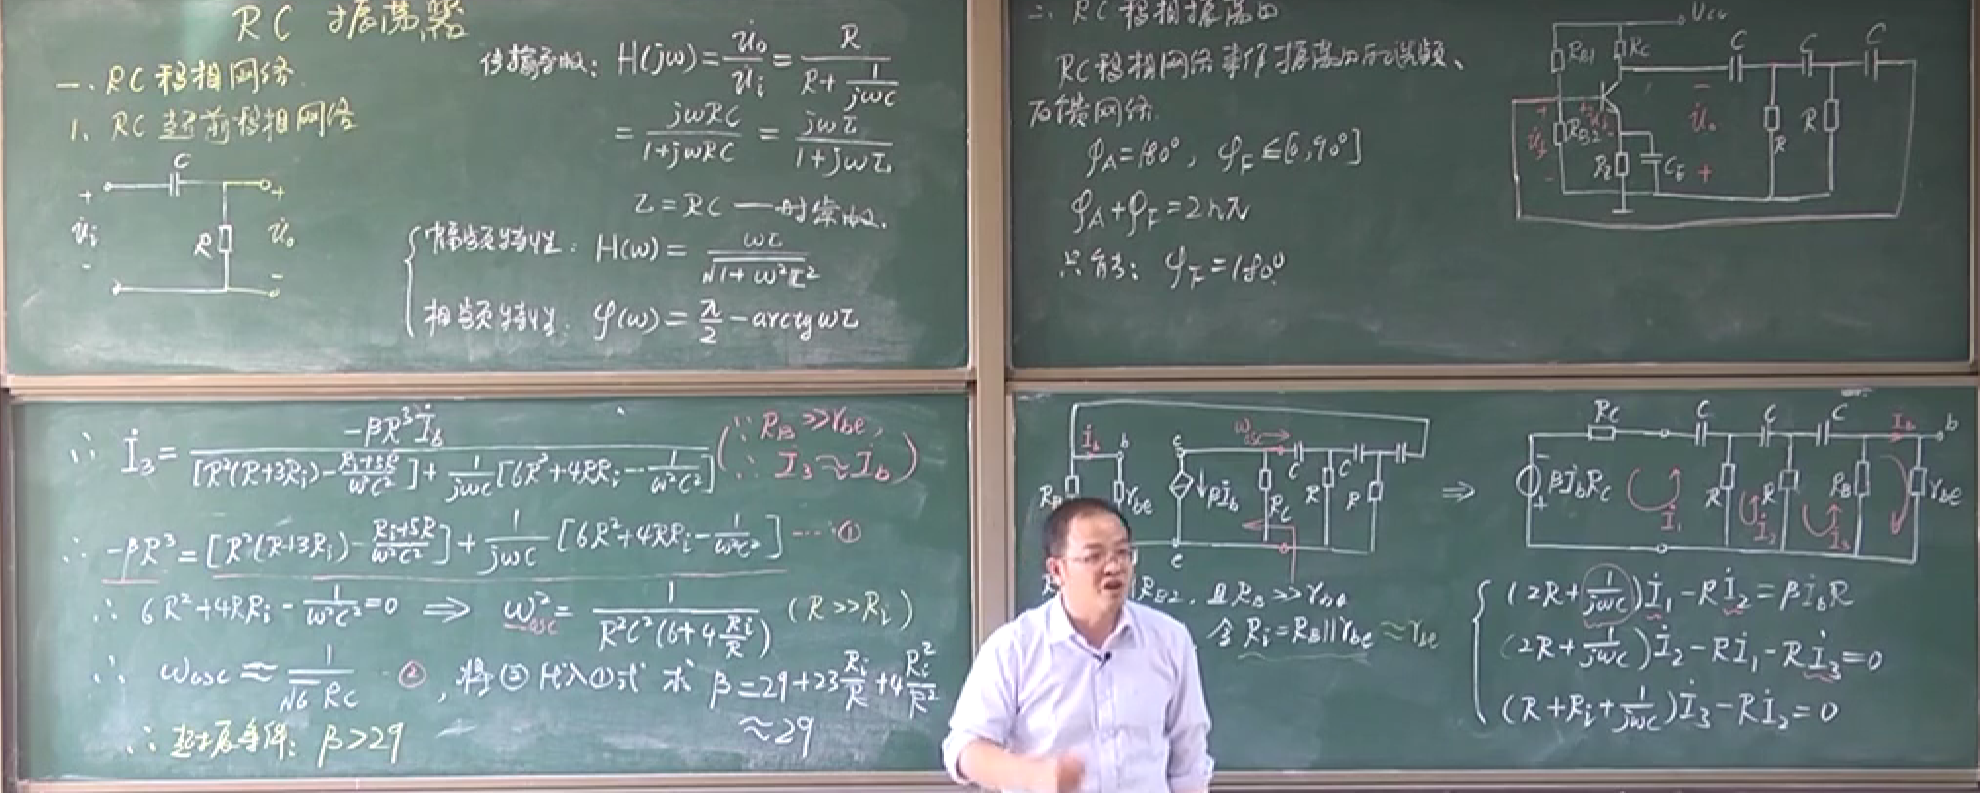 RC 振荡器
一、RC移相网络
1、RC超前移相网络
C
+ +
u̇i R u̇o
- -
传输函数: H(jω) = u̇o/u̇i = R/(R+1/(jωC))
= jωRC/(1+jωRC) = jωτ/(1+jωτ)
τ = RC — 时常数.
幅频特性: H(ω) = ωτ/√(1+ω²τ²)
相频特性: φ(ω) = π/2 - arctgωτ
二、RC移相振荡
RC移相网络来作振荡的选频、
反馈网络
φA=180°, φF ≤[0,90°]
φA+φF=2nπ
只能: φF=180°
Ucc
RB1 RC C C C
+ + - + -
u̇f RB2 u̇i u̇o R R
- RE CE +
∴ İ3 = -βR³İb/([R²(R+3Ri)-(Ri+5R)/(ω²C²)]+1/(jωC)[6R²+4RRi-1/(ω²C²)]) (∵ RB≫rbe,
∴ İ3≈İb)
∴ -βR³=[R²(R+3Ri)-(Ri+5R)/(ω²C²)]+1/(jωC)[6R²+4RRi-1/(ω²C²)] ---- ①
∴ 6R²+4RRi-1/(ω²C²)=0 ⇒ ω²osc=1/(R²C²(6+4Ri/R)) (R≫Ri)
∴ ωosc≈1/(√6 RC) ②, 将②代入①式 求 β=29+23Ri/R+4Ri²/R²
≈29
∴ 起振条件: β>29
İb b c ωosc C C
RB rbe ↓βİb RC R R
e
RB2, 且RB≫rbe
令Ri=RB∥rbe≈rbe
⇒
RC C C C İb b
- βİbRC + R R RB rbe
İ1 İ2 İ3
(2R+1/(jωC))İ1-Rİ2=βİbR
(2R+1/(jωC))İ2-Rİ1-Rİ3=0
(R+Ri+1/(jωC))İ3-Rİ2=0